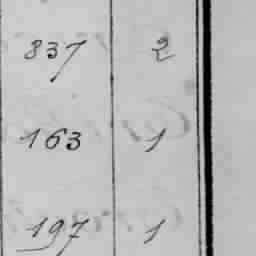 837 2
163 1
197 1